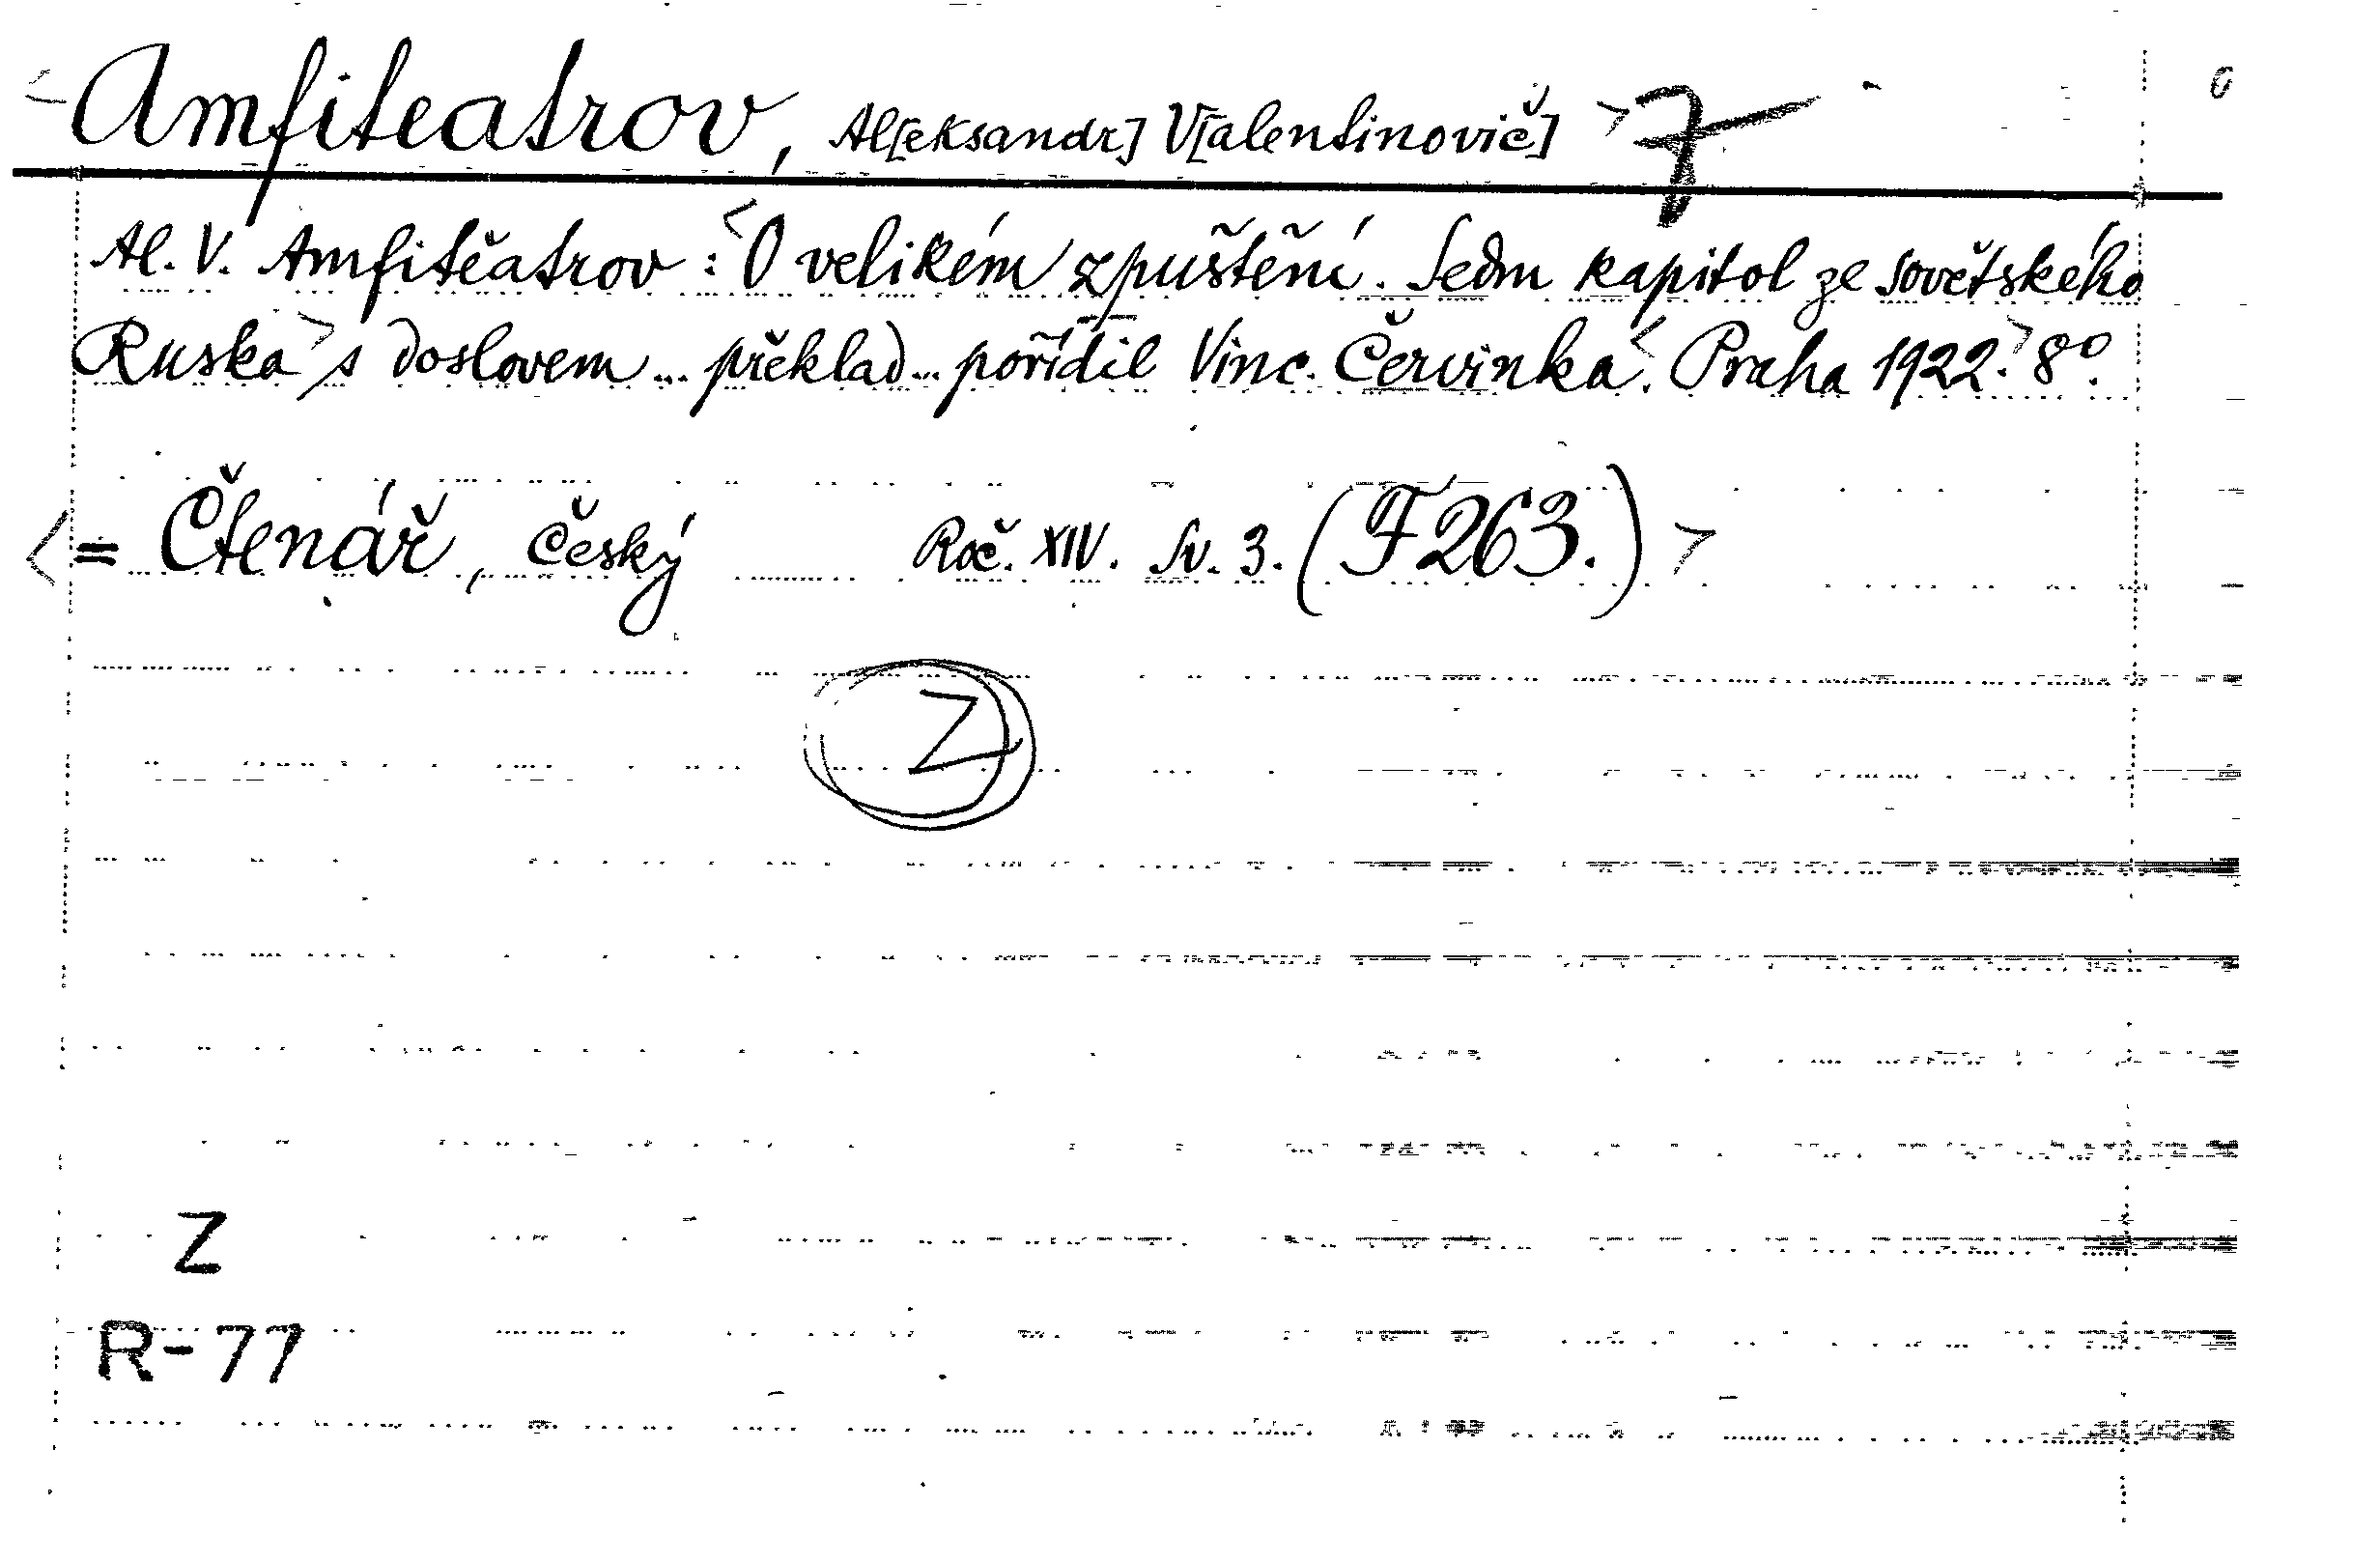 <Amfiteatrov, Al[eksandr] V[alentinovič]> 7
Al. V. Amfitěatrov: <O velikém zpuštění. Sedm kapitol ze sovětského
Ruska> s doslovem... překlad... pořídil Vinc. Červinka. <Praha 1922.> 8º.
<= Čtenář, Český Roč. XIV. Sv. 3. (F 263.)>
Z
Z
R-77